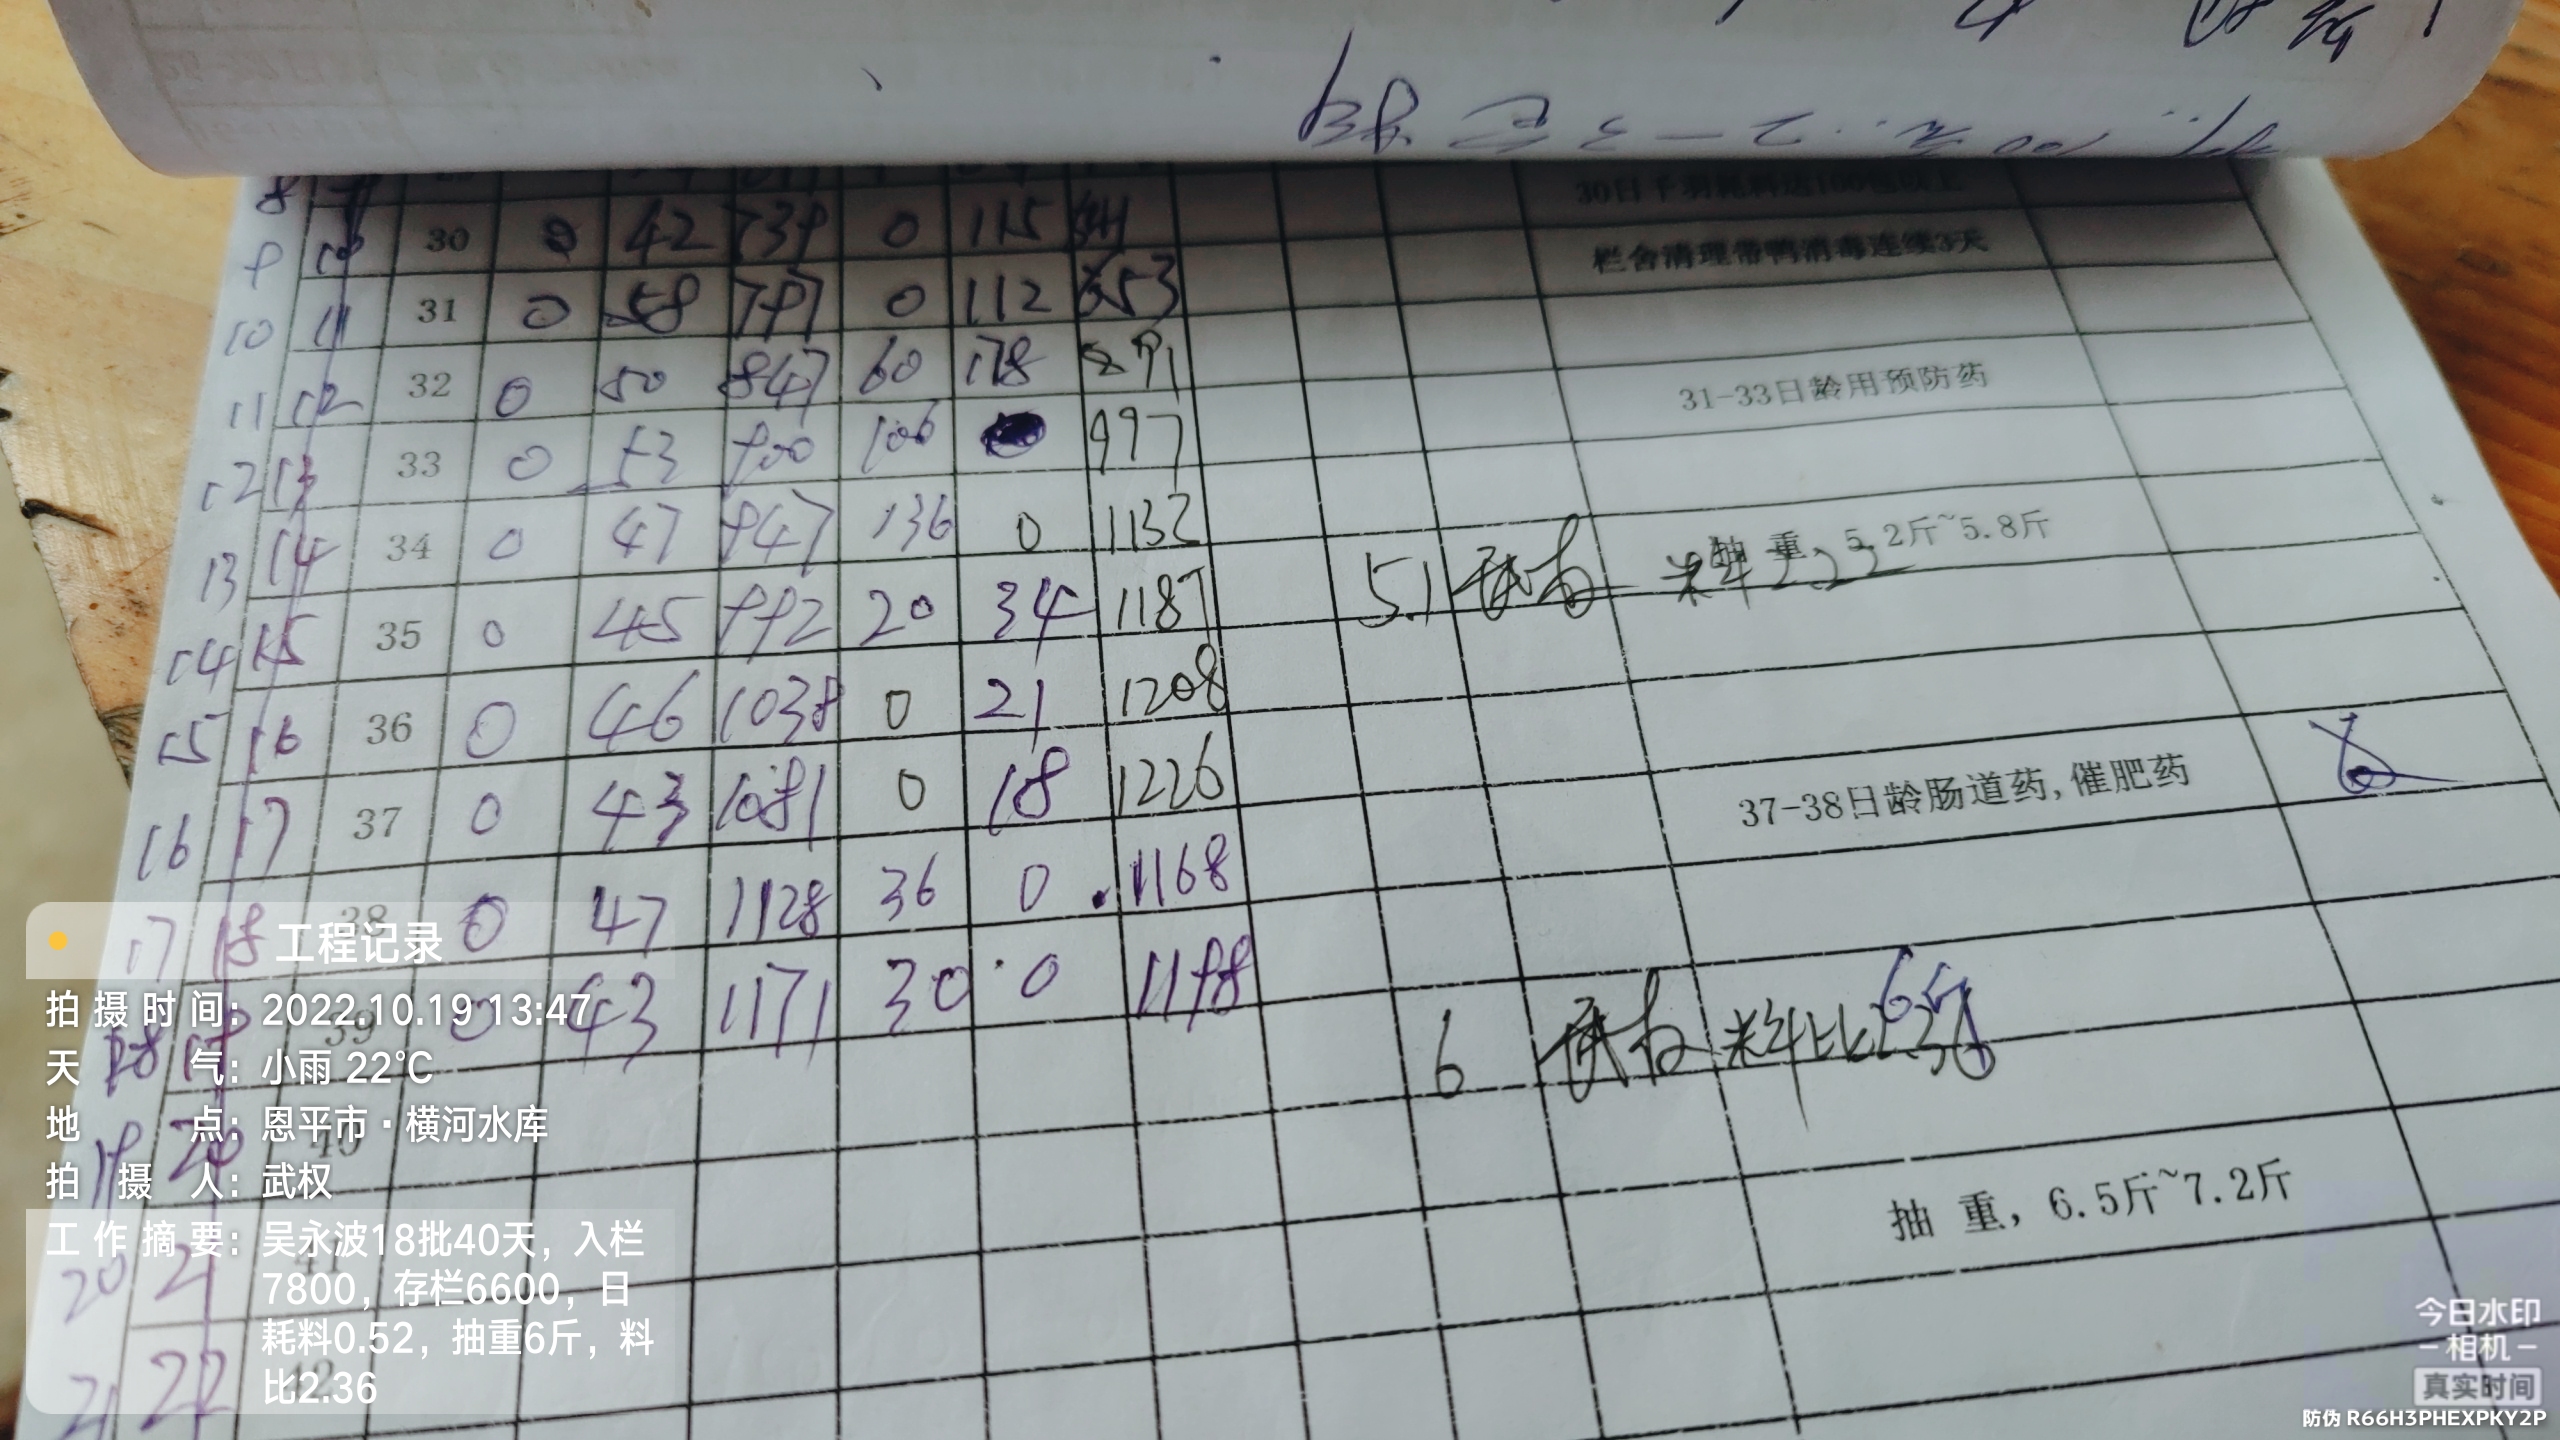 30日千羽耗料达100包以上
9 10 30 0 42 739 0 115
栏舍清理带鸭消毒连续3天
10 11 31 0 58 797 0 112 653
11 12 32 0 50 847 60 178 891
31-33日龄用预防药
12 13 33 0 53 900 106 997
13 14 34 0 47 947 136 0 1132
抽 重, 5.2斤~5.8斤
5.1 武权 料
14 15 35 0 45 992 20 34 1187
15 16 36 0 46 1038 0 21 1208
16 17 37 0 43 1081 0 18 1226
37-38日龄肠道药,催肥药
17 18 38 0 47 1128 36 0 1168
39 0 43 1171 30 0 1198
6 武权 料比2.36
6斤
19 20 40
抽 重, 6.5斤~7.2斤
20 21 41
21 22 42
工程记录
拍摄时间: 2022.10.19 13:47
天 气: 小雨 22℃
地 点: 恩平市·横河水库
拍 摄 人: 武权
工作摘要: 吴永波18批40天，入栏
7800，存栏6600，日
耗料0.52，抽重6斤，料
比2.36
今日水印
-相机-
真实时间
防伪 R66H3PHEXPKY2P